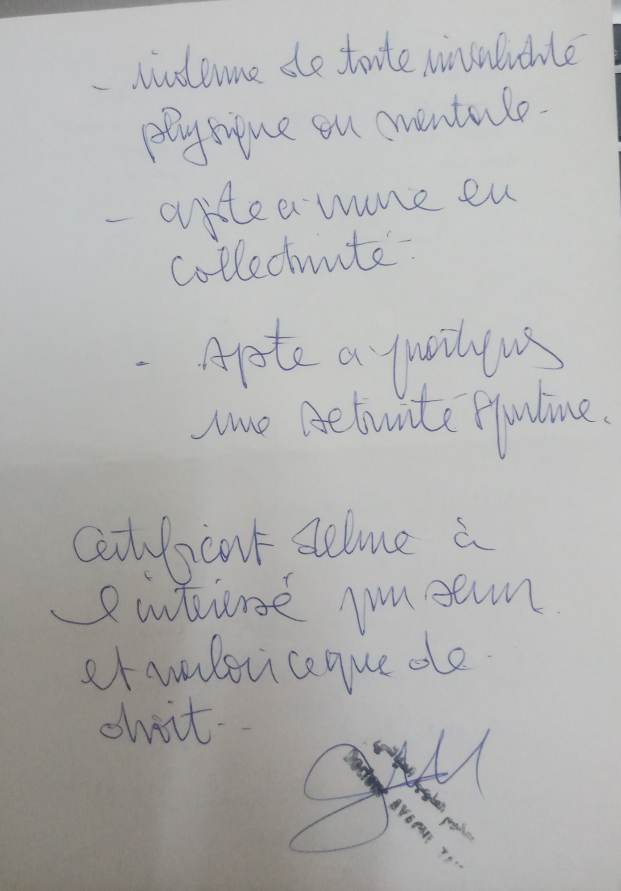 - indemne de toute invalidité
physique ou mentale.
- apte a vivre en
collectivité.
- Apte a pratiquer
une activité sportive.
Certificat délivré à
l'intéressé pour servir
et valoir ce que de
droit.
Docteur